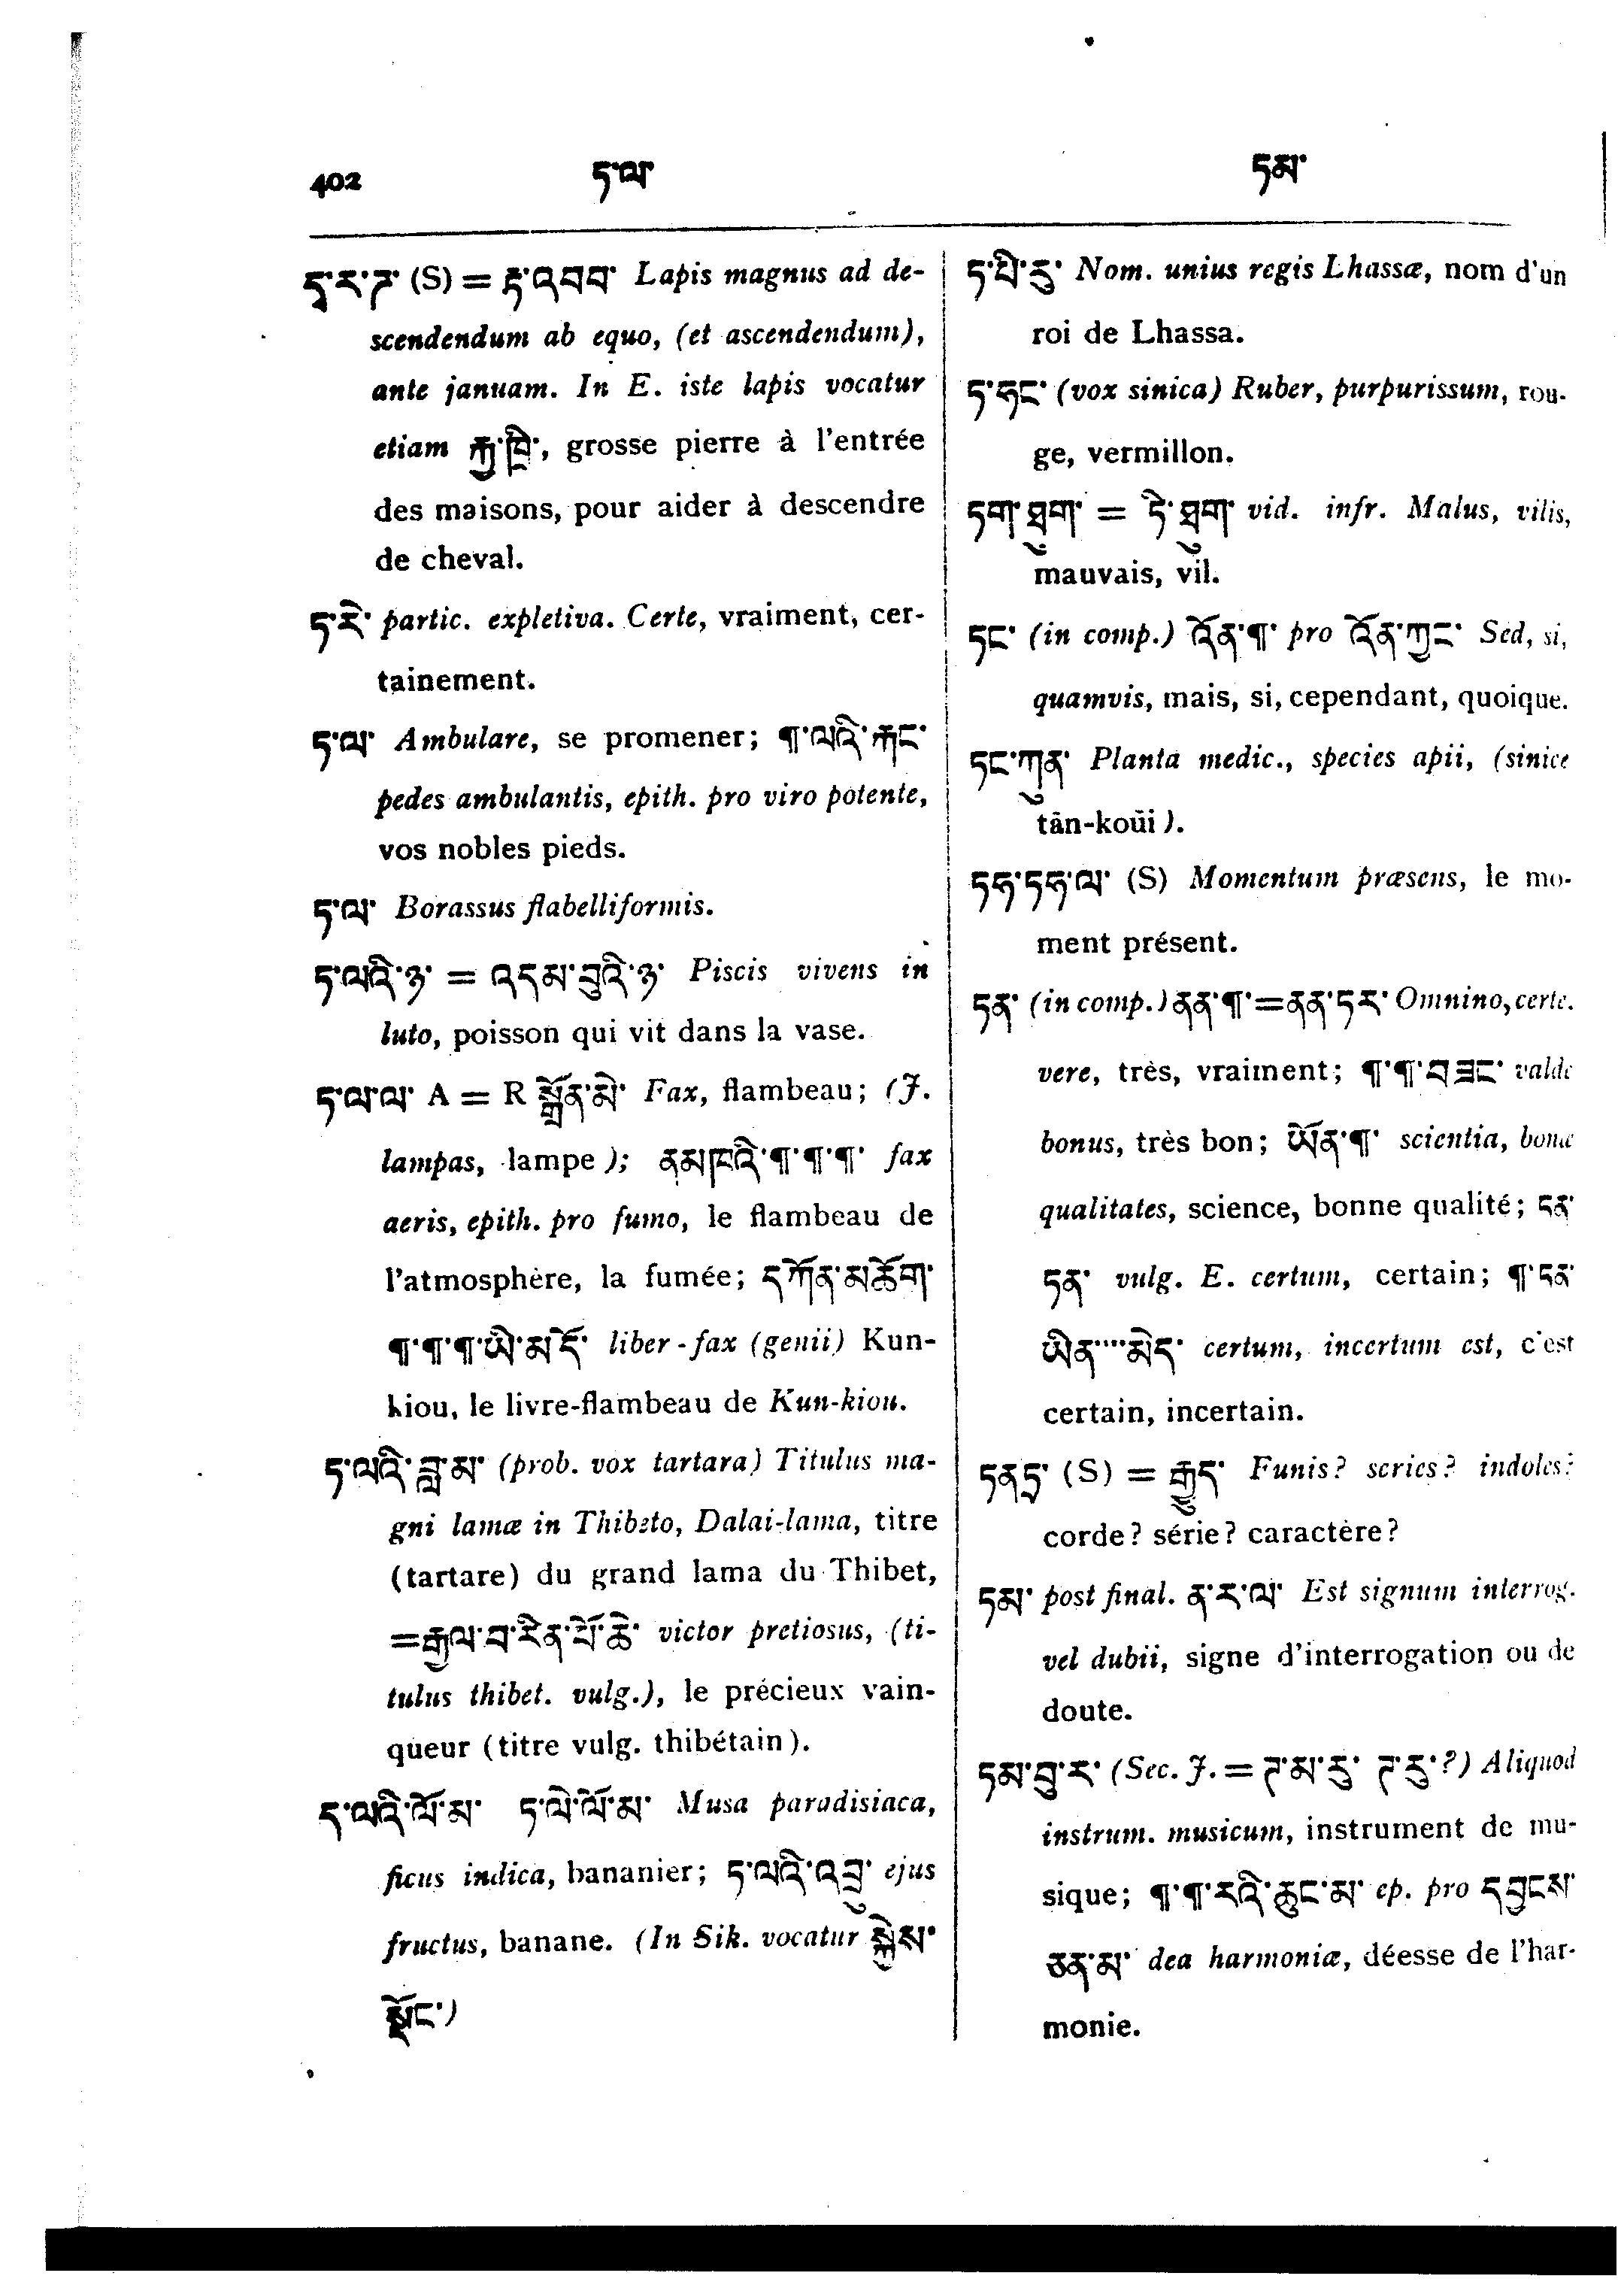 402 ཏ་ལ་ ཏམ་
ཏྭ་ར་ཊ་ (S) = རྟ་འབབ་ Lapis magnus ad de-
scendendum ab equo, (et ascendendum),
ante januam. In E. iste lapis vocatur
etiam རྒྱ་ཁྲི་, grosse pierre à l'entrée
des maisons, pour aider à descendre
de cheval.
ཏ་རེ་ partic. expletiva. Certe, vraiment, cer-
tainement.
ཏ་ལ་ Ambulare, se promener; ¶་ལའི་རྐང་
pedes ambulantis, epith. pro viro potente,
vos nobles pieds.
ཏ་ལ་ Borassus flabelliformis.
ཏ་ལའི་ཉ་ = འདམ་བུའི་ཉ་ Piscis vivens in
luto, poisson qui vit dans la vase.
ཏ་ལ་ལ་ A = R སྒྲོན་མེ་ Fax, flambeau; (J.
lampas, lampe); ནམཁའི་¶་¶་¶་ fax
aeris, epith. pro fumo, le flambeau de
l'atmosphère, la fumée; དཀོན་མཆོག་
¶་¶་¶་ཡི་མདོ་ liber-fax (genii) Kun-
kiou, le livre-flambeau de Kun-kiou.
ཏ་ལའི་བླ་མ་ (prob. vox tartara) Titulus ma-
gni lamæ in Thibeto, Dalai-lama, titre
(tartare) du grand lama du Thibet,
=རྒྱལ་བ་རིན་པོ་ཆེ་ victor pretiosus, (ti-
tulus thibet. vulg.), le précieux vain-
queur (titre vulg. thibétain).
ད་ལའི་ལོ་མ་ ཏ་ལེ་ལོ་མ་ Musa paradisiaca,
ficus indica, bananier; ཏ་ལའི་འབྲུ་ ejus
fructus, banane. (In Sik. vocatur སྐྱེས་
སྡོང་)
ཏ་པི་རུ་ Nom. unius regis Lhassæ, nom d'un
roi de Lhassa.
ཏ་ཧང་ (vox sinica) Ruber, purpurissum, rou-
ge, vermillon.
ཏག་ཐུག་ = ཏེ་ཐུག་ vid. infr. Malus, vilis,
mauvais, vil.
ཏང་ (in comp.) འོན་¶་ pro འོན་ཀྱང་ Sed, si,
quamvis, mais, si, cependant, quoique.
ཏང་ཀུན་ Planta medic., species apii, (sinice
tān-koūi).
ཏཧ་ཏཧ་ལ་ (S) Momentum præsens, le mo-
ment présent.
ཏན་ (in comp.) ནན་¶་=ནན་ཏར་ Omnino, certe.
vere, très, vraiment; ¶་¶་བཟང་ valde
bonus, très bon; ཡོན་¶་ scientia, bonæ
qualitates, science, bonne qualité; ཏན་
ཏན་ vulg. E. certum, certain; ¶་ཏན་
ཡིན་···མེད་ certum, incertum est, c'est
certain, incertain.
ཏནཏྲ་ (S) = རྒྱུད་ Funis? series? indoles?
corde? série? caractère?
ཏམ་ post final. ན་ར་ལ་ Est signum interrog.
vel dubii, signe d'interrogation ou de
doute.
ཏམ་བུ་ར་ (Sec. J. = ཌ་མ་རུ་ ཌ་རུ་?) Aliquod
instrum. musicum, instrument de mu-
sique; ¶་¶་རའི་ཆུང་མ་ ep. pro དབྱངས་
ཅན་མ་ dea harmoniæ, déesse de l'har-
monie.